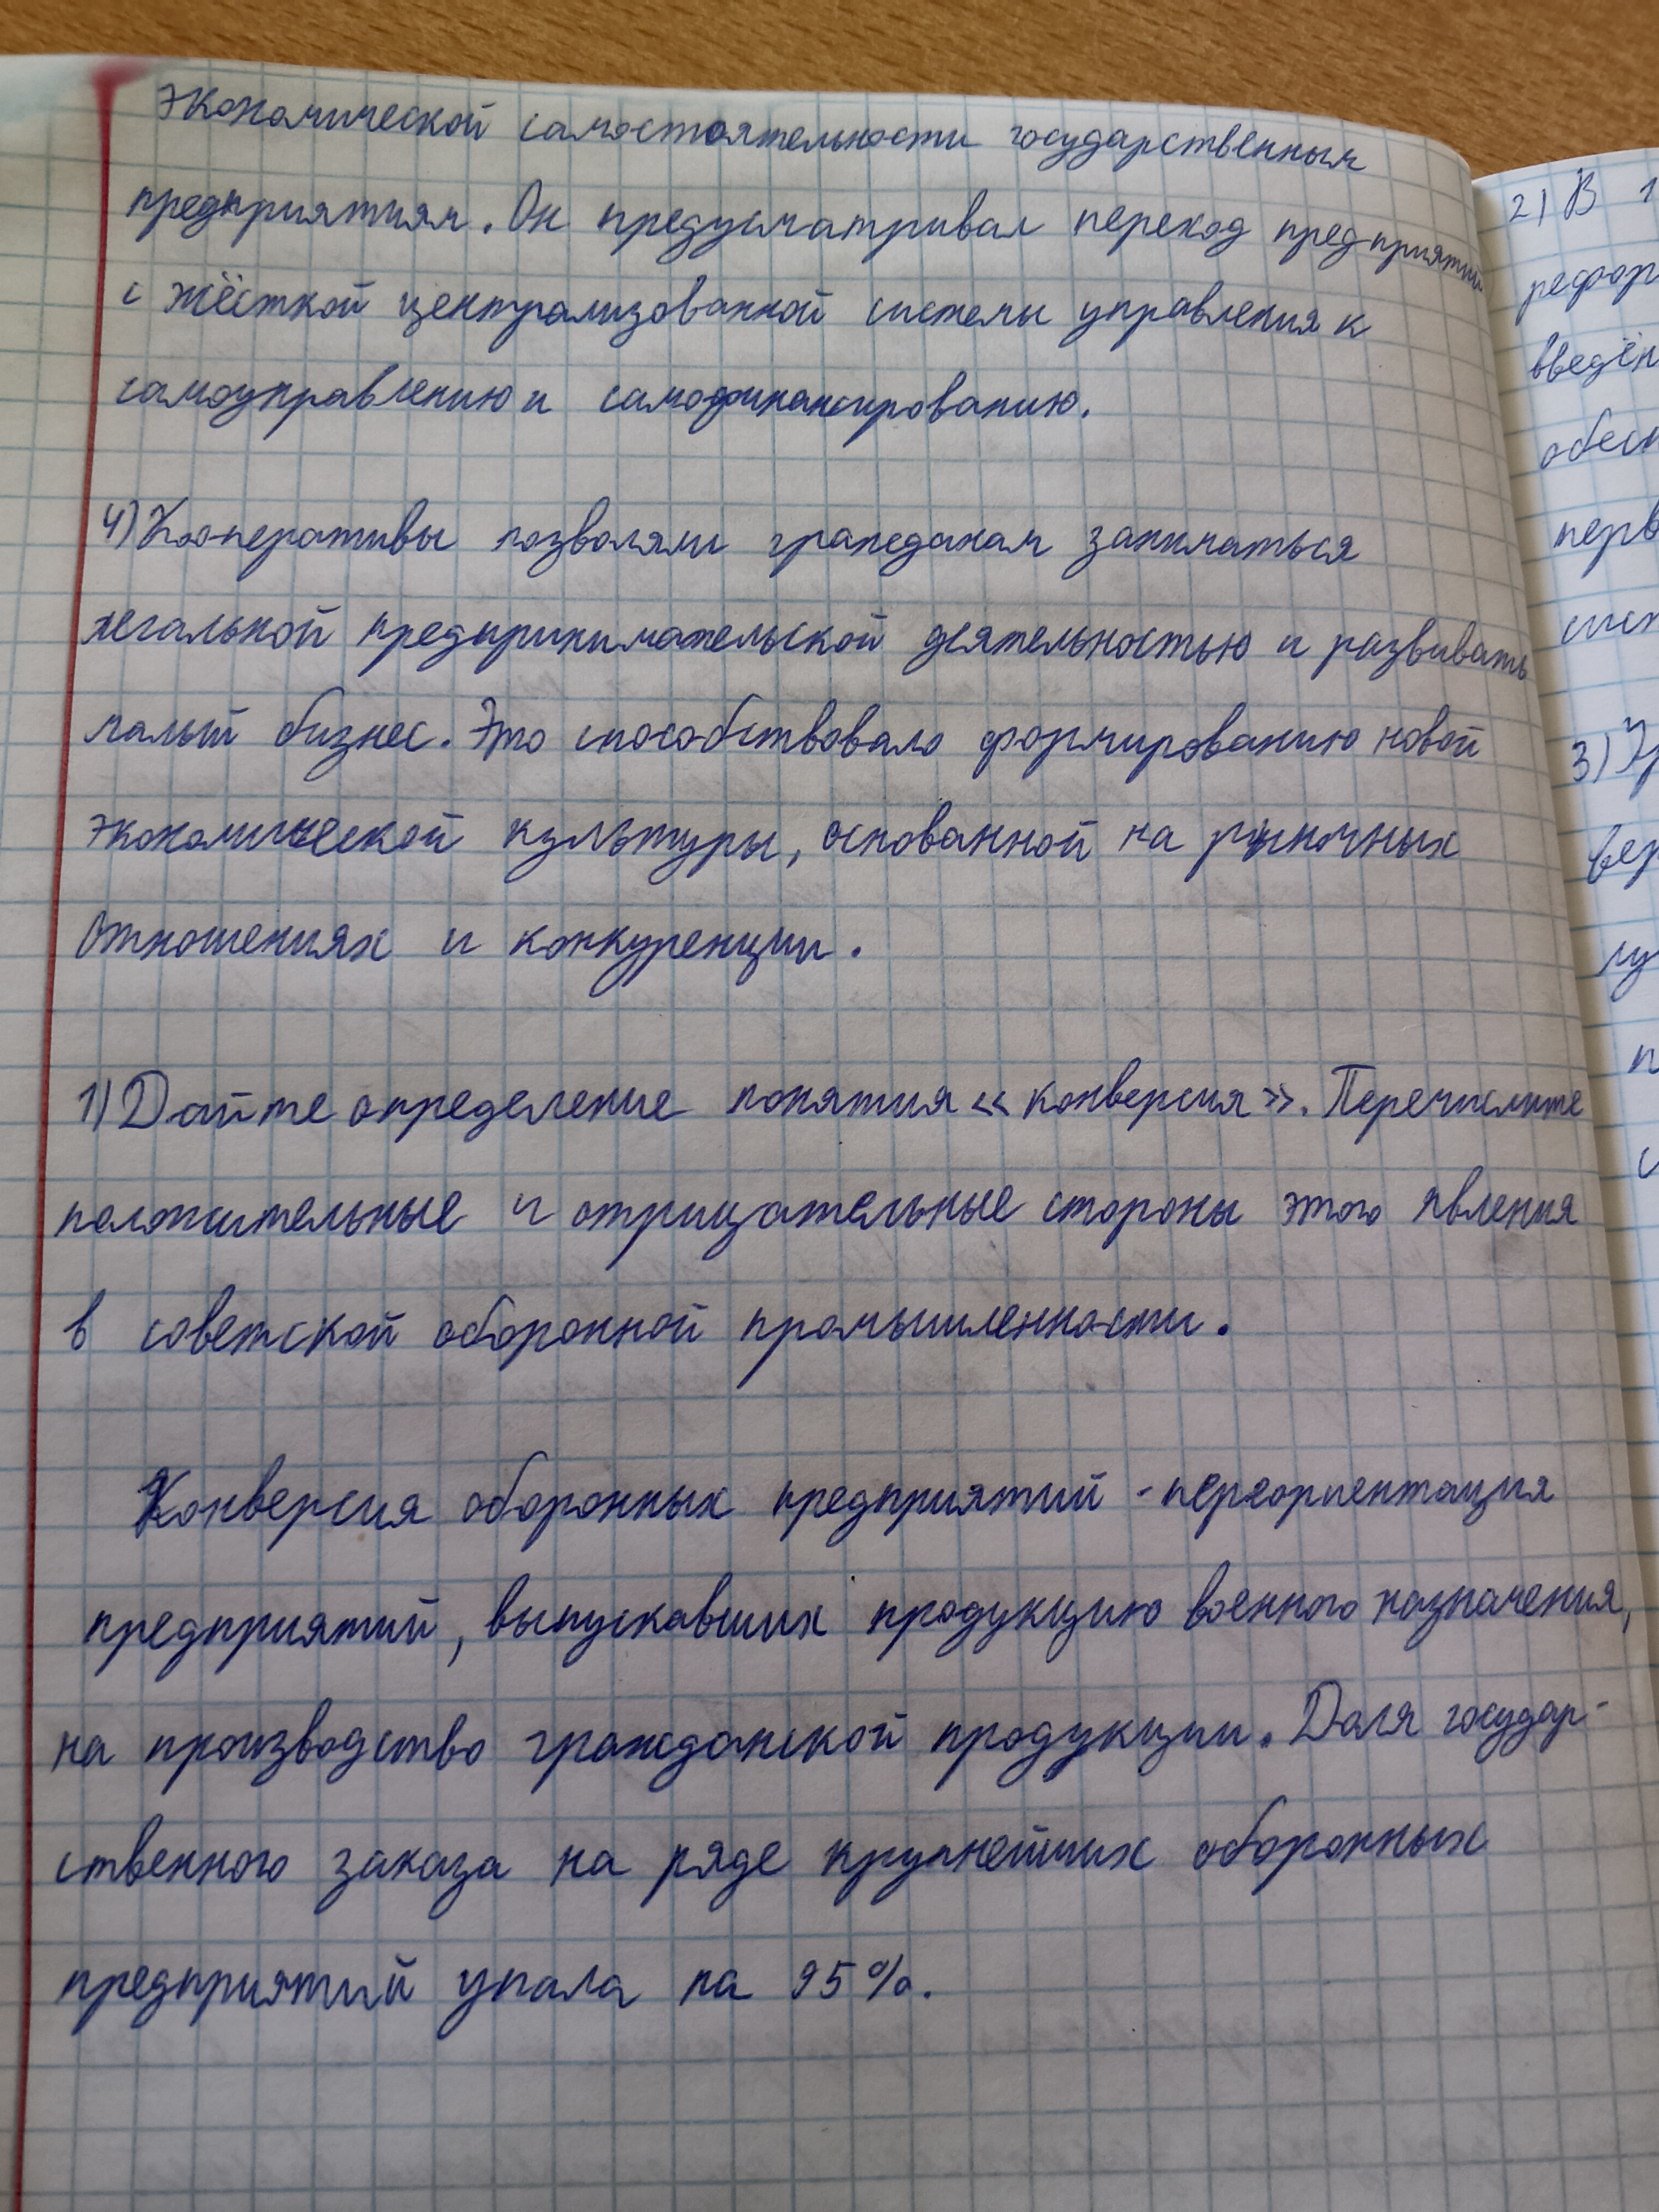 экономической самостоятельности государственным
предприятиям. Он предусматривал переход предприятий
с жёсткой централизованной системы управления к
самоуправлению и самофинансированию.
4) Кооперативы позволяли гражданам заниматься
легальной предпринимательской деятельностью и развивать
малый бизнес. Это способствовало формированию новой
экономической культуры, основанной на рыночных
отношениях и конкуренции.
1) Дайте определение понятия «конверсия». Перечислите
положительные и отрицательные стороны этого явления
в советской оборонной промышленности.
Конверсия оборонных предприятий - переориентация
предприятий, выпускавших продукцию военного назначения,
на производство гражданской продукции. Доля государ-
ственного заказа на ряде крупнейших оборонных
предприятий упала на 95%.
2) В 1
рефор
введён
обесп
перв
сист
3)
вер
лу
п
с